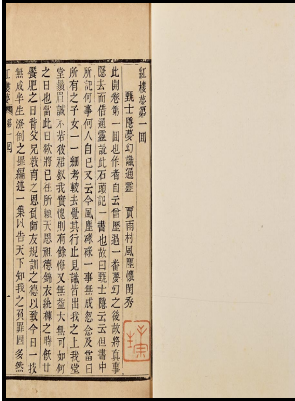 紅樓夢第一回
甄士隱夢幻識通靈 賈雨村風塵懷閨秀
此開卷第一回也作者自云曾歷過一番夢幻之後故將真事
隱去而借通靈說此石頭記一書也故曰甄士隱云云但書中
所記何事何人自己又云今風塵碌碌一事無成忽念及當日
所有之女子一一細考較去覺其行止見識皆出我之上我堂
堂鬚眉誠不若彼裙釵我實愧則有餘悔又無益大無可如何
之日也當此日欲將已往所賴天恩祖德錦衣紈袴之時飫甘
饜肥之日背父兄教育之恩負師友規訓之德以致今日一技
無成半生潦倒之罪編述一集以告天下知我之負罪固多然
紅樓夢 第一回 一